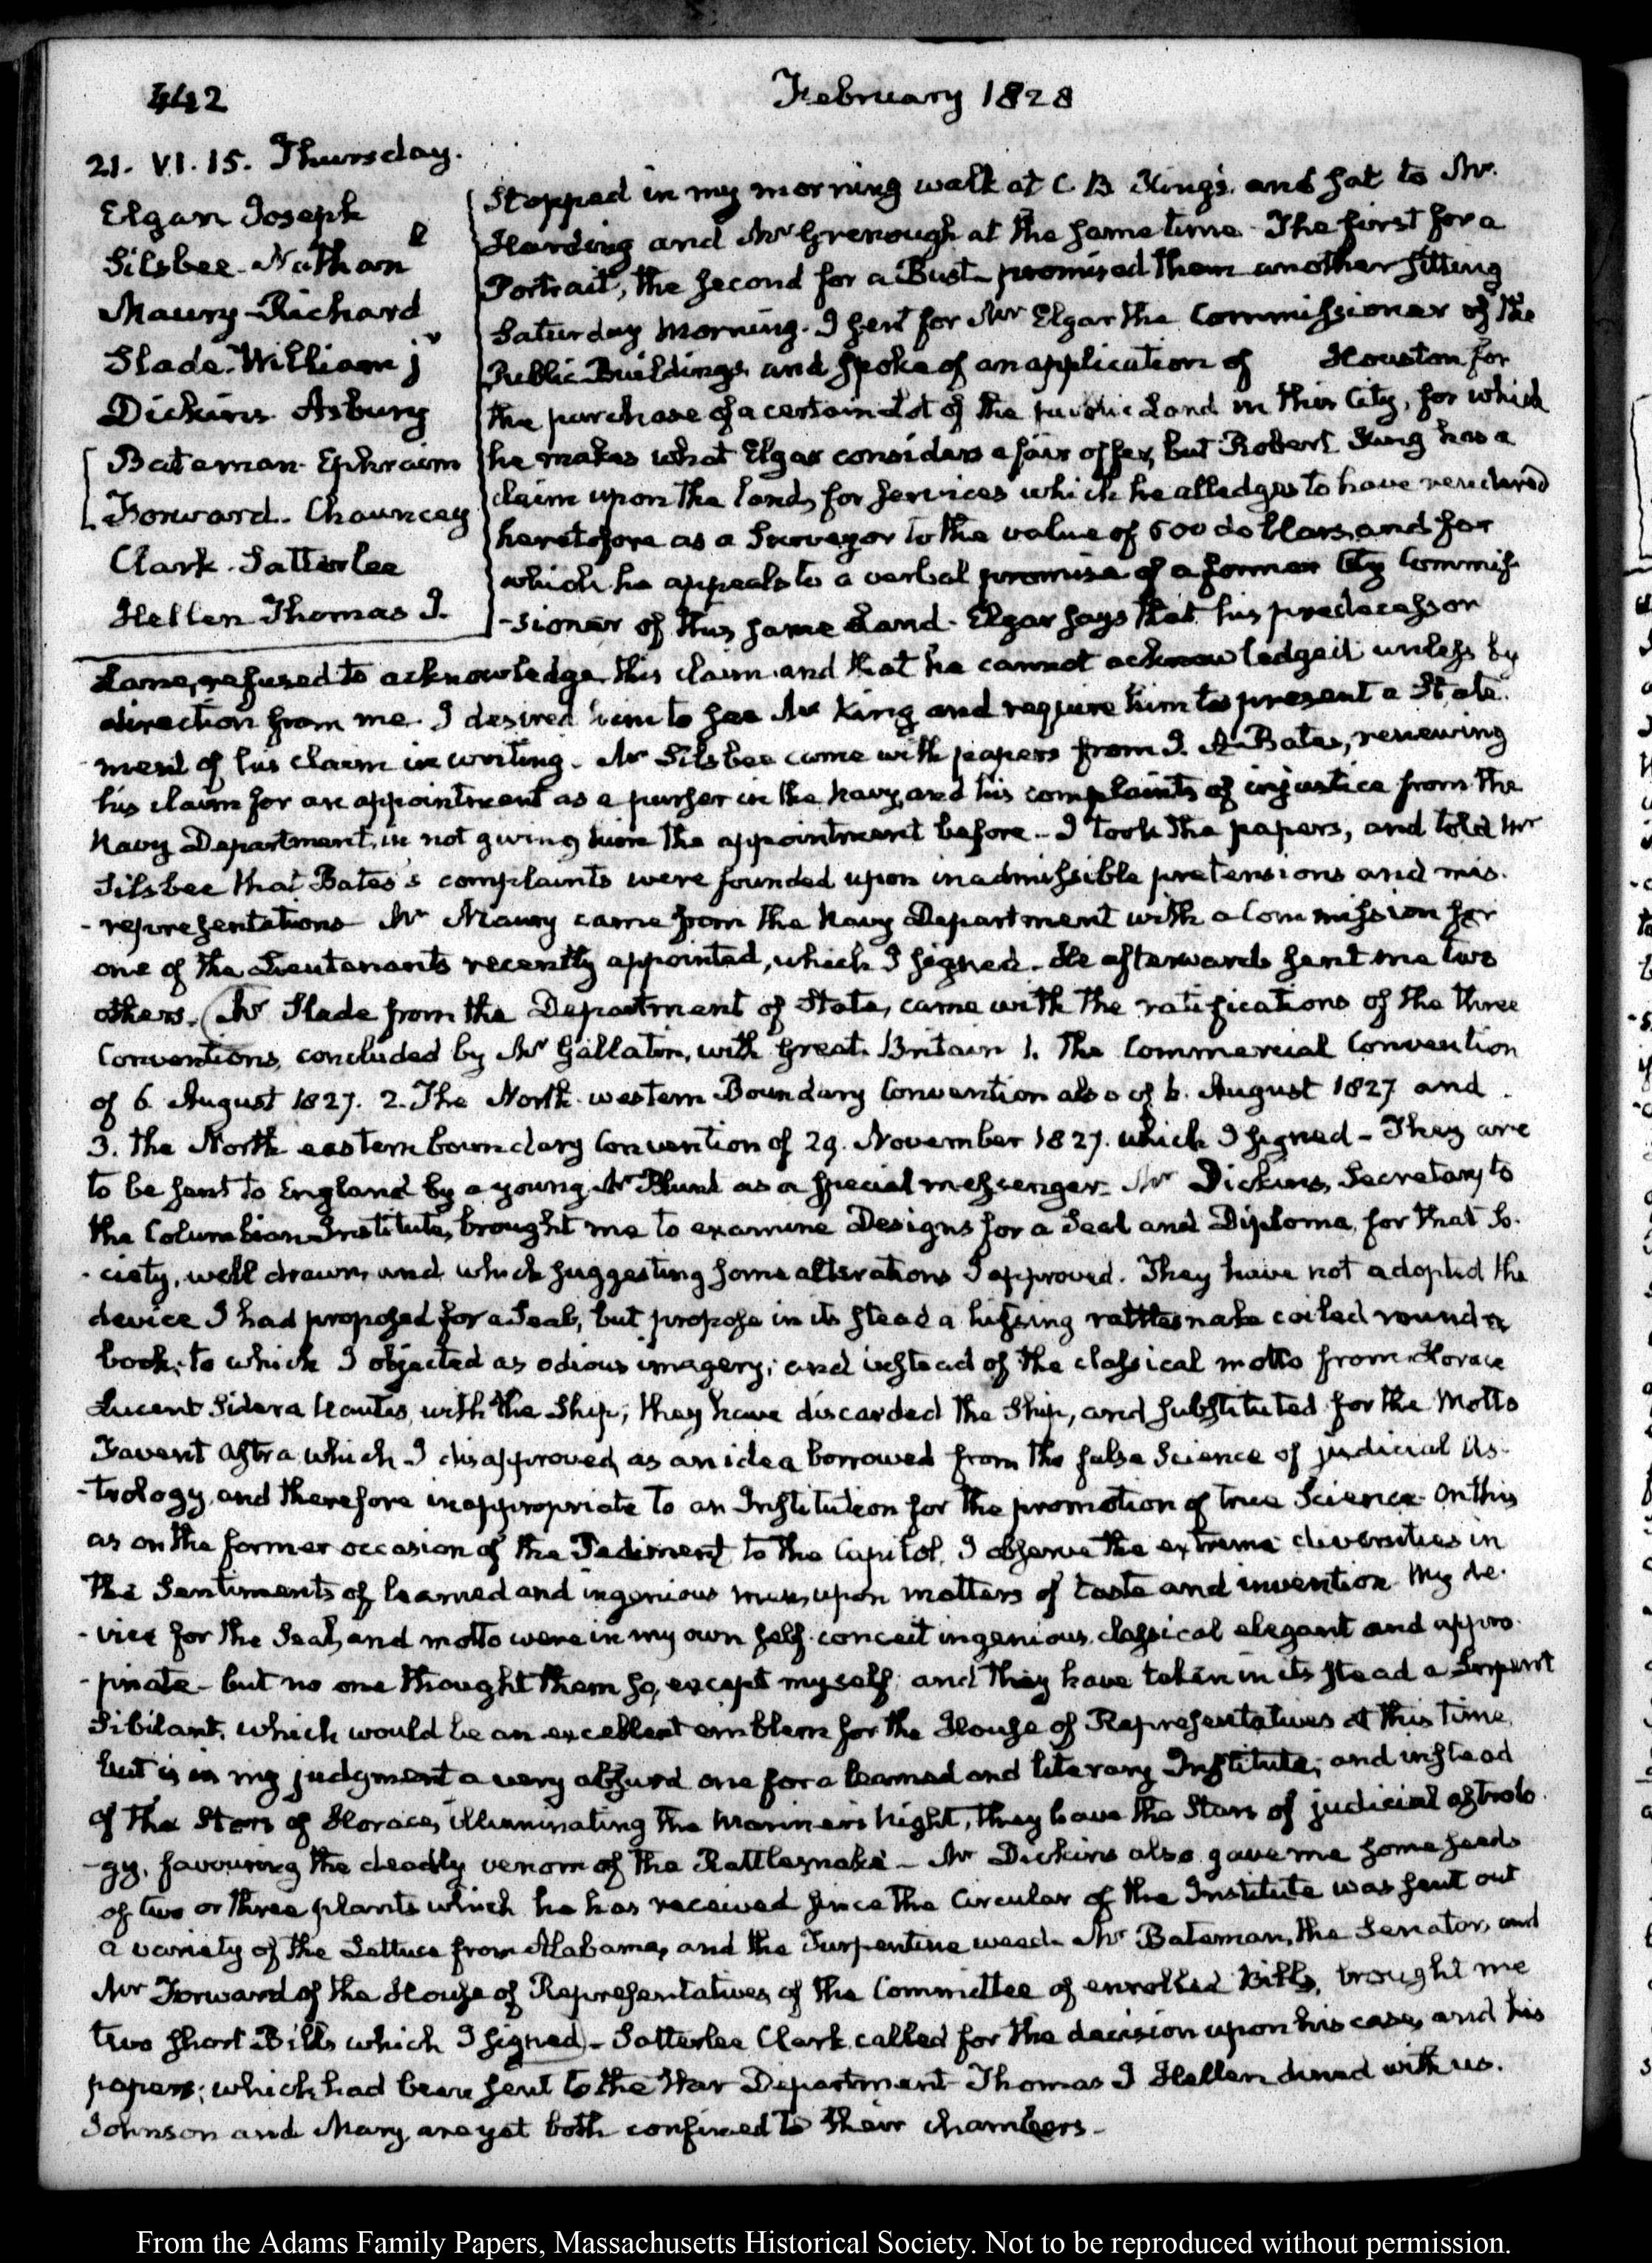 442
February 1828
21. VI. 15. Thursday.
Elgar Joseph
Silsbee. Nathan
Maury Richard
Slade. William jr
Dickins Asbury
Bateman. Ephraim
Forward. Chauncey
Clark. Satterlee
Hellen Thomas J.
Stopped in my morning walk at C B King's, and sat to Mr.
Harding and Mr Grenough at the same time. The first for a
Portrait, the second for a Bust promised them another sitting
Saturday Morning. I sent for Mr Elgar the Commissioner of the
Public Buildings, and spoke of an application of Houston for
the purchase of a certain Lot of the public Land in this City, for which
he makes what Elgar considers a fair offer, but Robert King has a
claim upon the land, for services which he alledges to have rendered
heretofore as a Surveyor to the value of 500 dollars, and for
which he appeals to a verbal promise of a former City Commis-
-sioner of this same Land. Elgar says that his predecessor
Lane, refused to acknowledge this claim and that he cannot acknowledge it unless by
direction from me. I desired him to see Mr King and require him to present a State-
-ment of his claim in writing. Mr Silsbee came with papers from J. A. Bates, renewing
his claim for an appointment as a purser in the Navy, and his complaints of injustice from the
Navy Department, in not giving him the appointment before. I took the papers, and told Mr
Silsbee that Bates's complaints were founded upon inadmissible pretensions and mis-
-representations Mr Maury came from the Navy Department with a Commission for
one of the Lieutenants recently appointed, which I signed. He afterwards sent me two
others. (Mr Slade from the Department of State, came with the ratifications of the three
Conventions, concluded by Mr Gallatin, with Great Britain 1. The Commercial Convention
of 6. August 1827. 2. The North-western Boundary Convention also of 6. August 1827 and
3. the North eastern boundary Convention of 29. November 1827. which I signed – They are
to be sent to England by a young Mr Blunt as a special messenger. Mr Dickins, Secretary to
the Columbian Institute, brought me to examine Designs for a Seal and Diploma, for that So-
-ciety, well drawn, and which suggesting some alterations I approved. They have not adopted the
device I had proposed for a Seal, but propose in its stead a hissing rattlesnake coiled round a
book; to which I objected as odious imagery; and instead of the classical motto from Horace
Lucent Sidera Nautis, with the Ship; they have discarded the Ship, and substituted for the Motto
Favent Astra which I disapproved, as an idea borrowed from the false Science of judicial As-
-trology, and therefore inappropriate to an Institution for the promotion of true Science. On this
as on the former occasion of the Pediment to the Capitol, I observe the extreme diversities in
the Sentiments of learned and ingenious men, upon matters of taste and invention. My de-
-vice for the Seal, and motto were in my own self-conceit ingenious, classical elegant and appro-
-priate – but no one thought them so, except myself; and they have taken in its stead a Serpent
Sibilant, which would be an excellent emblem for the House of Representatives at this time,
but is in my judgment a very absurd one for a learned and literary Institute; and instead
of the Stars of Horace, illuminating the Mariner's Night, they have the Stars of judicial astrolo-
-gy, favouring the deadly venom of the Rattlesnake – Mr Dickins also gave me some seeds
of two or three plants which he has received since the Circular of the Institute was sent out
a variety of the Lettuce from Alabama, and the Turpentine weed. Mr Bateman, the Senator, and
Mr Forward of the House of Representatives, of the Committee of enrolled Bills, brought me
two short Bills which I signed) – Satterlee Clark called for the decision upon his case, and his
papers; which had been sent to the War Department Thomas J Hellen dined with us.
Johnson and Mary, are yet both confined to their chambers –
From the Adams Family Papers, Massachusetts Historical Society. Not to be reproduced without permission.